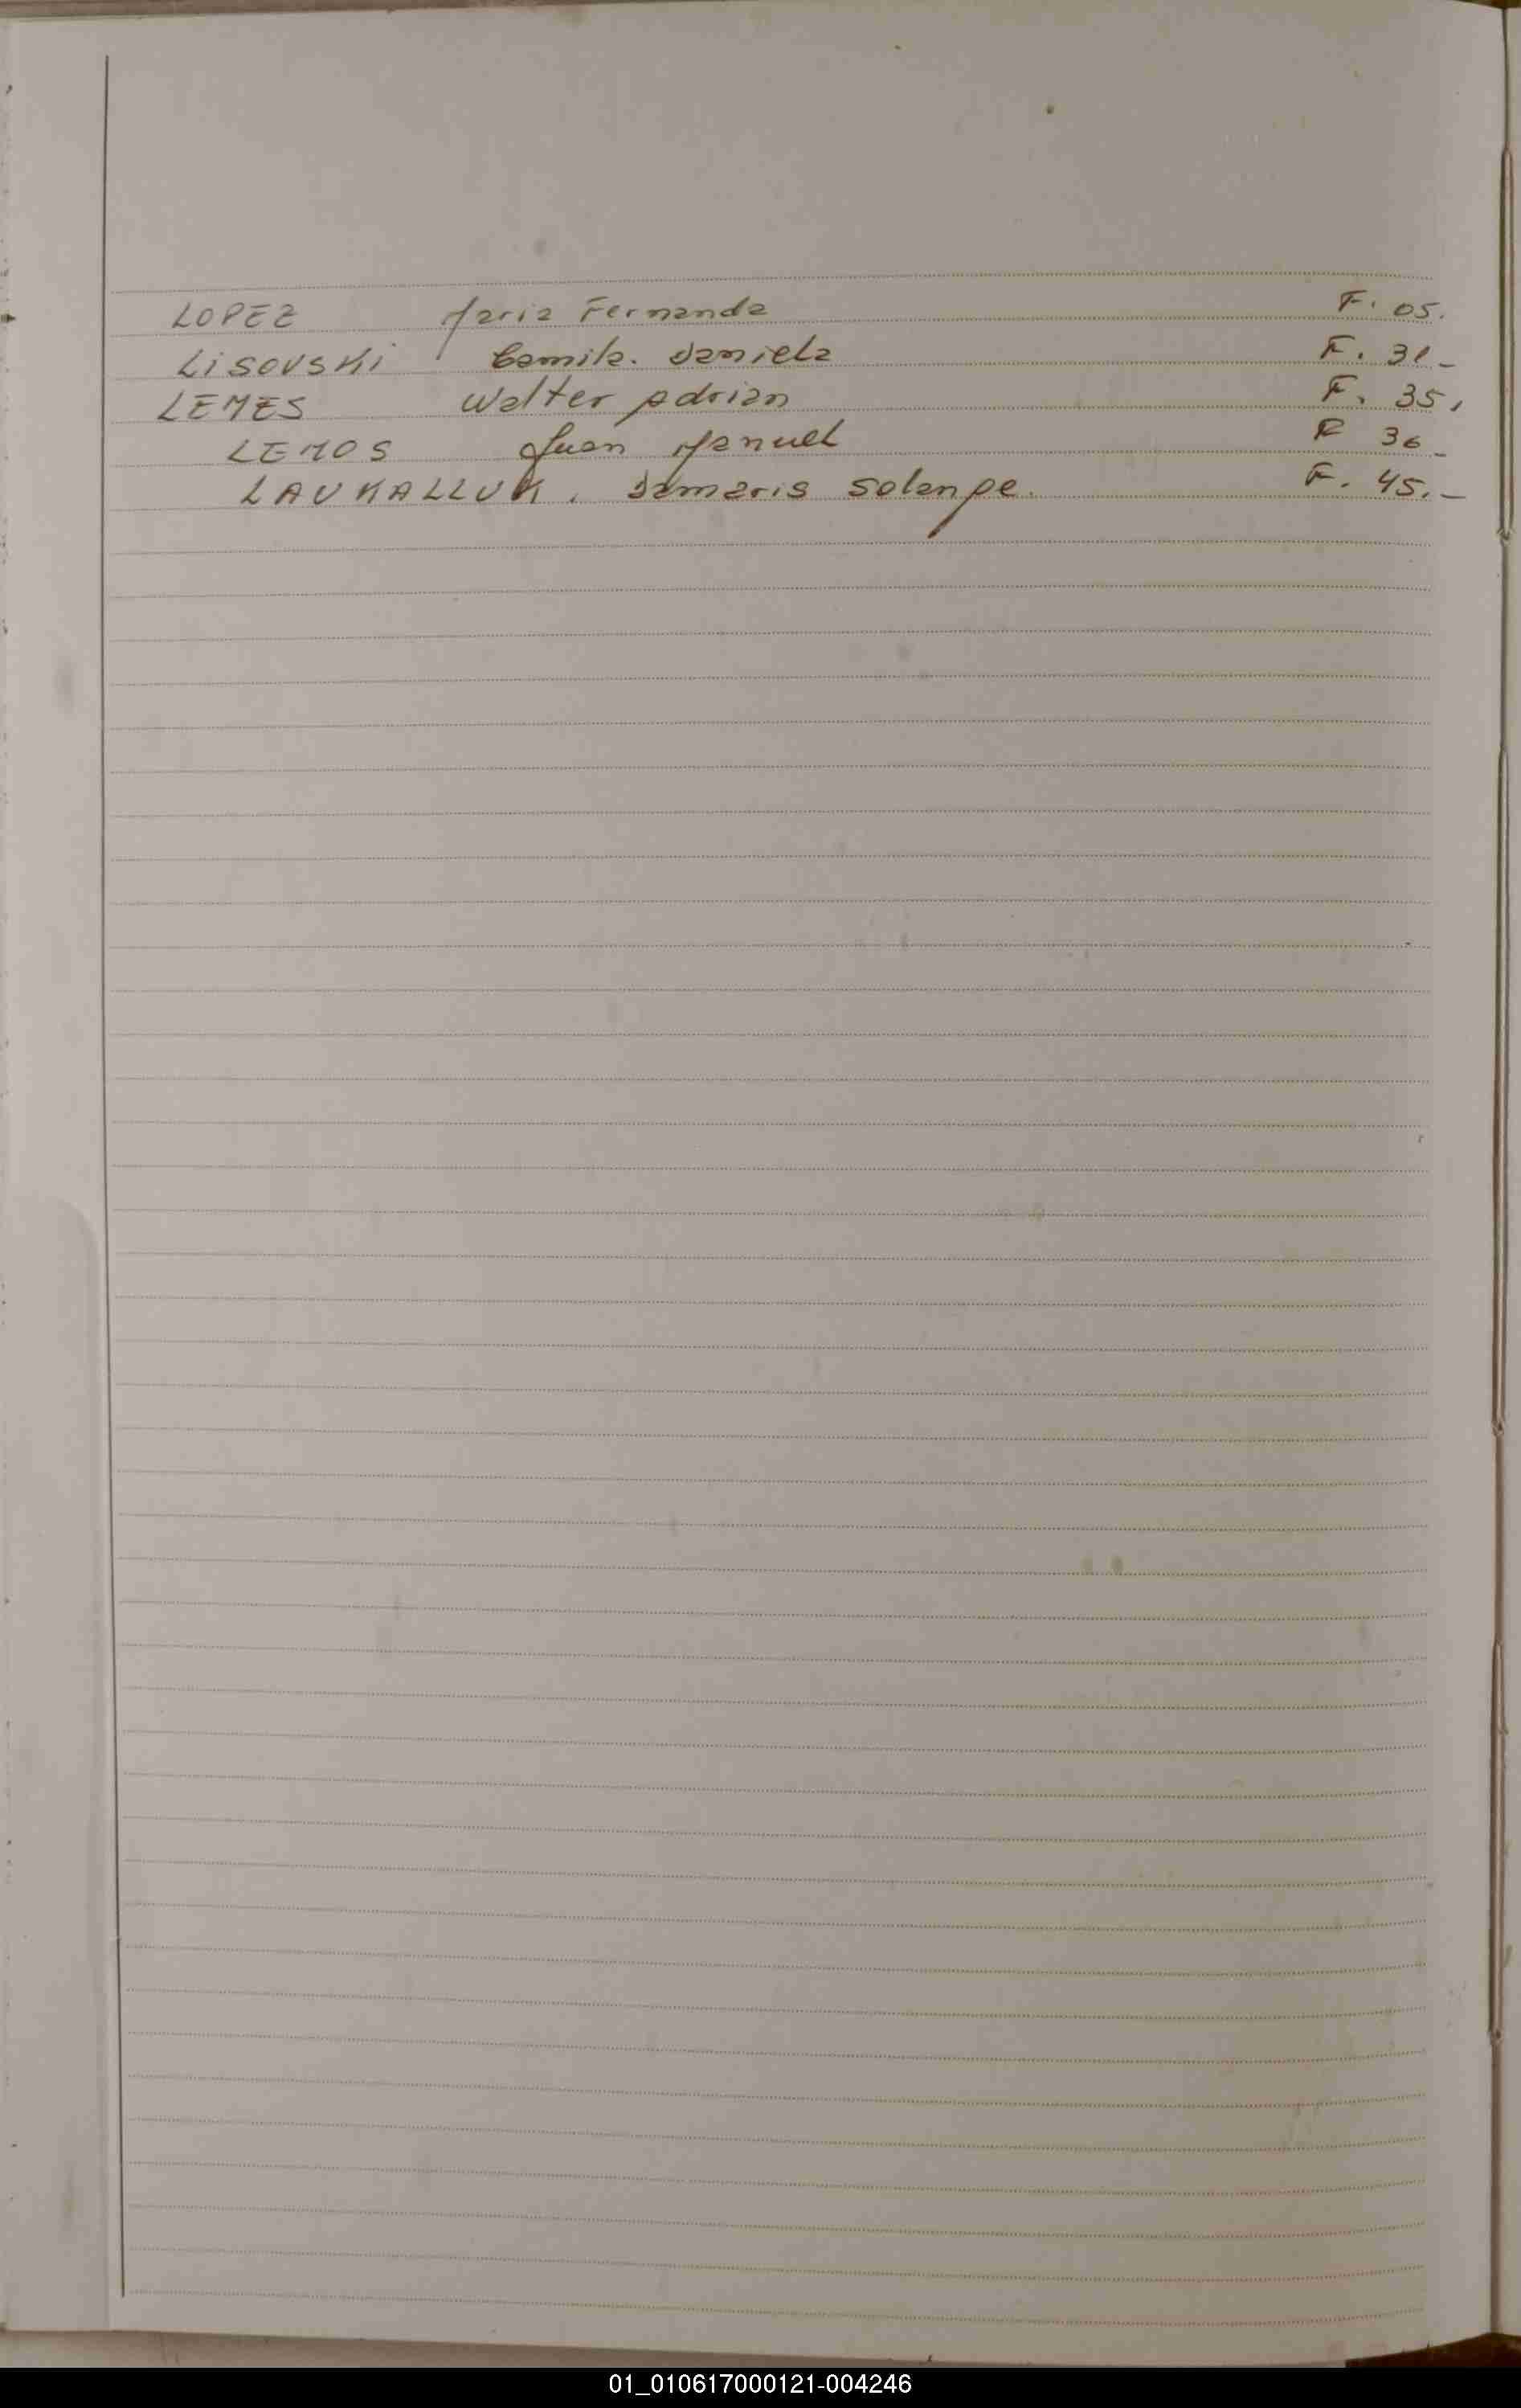 LOPEZ Maria Fernanda F. 05.
LiSOVSKi Camila. Daniela F. 31_
LEMES Walter Adrian F. 35,
LEMOS Juan Manuel F 36_
LAUKALLUK. Damaris Solange. F. 45._
01_010617000121-004246